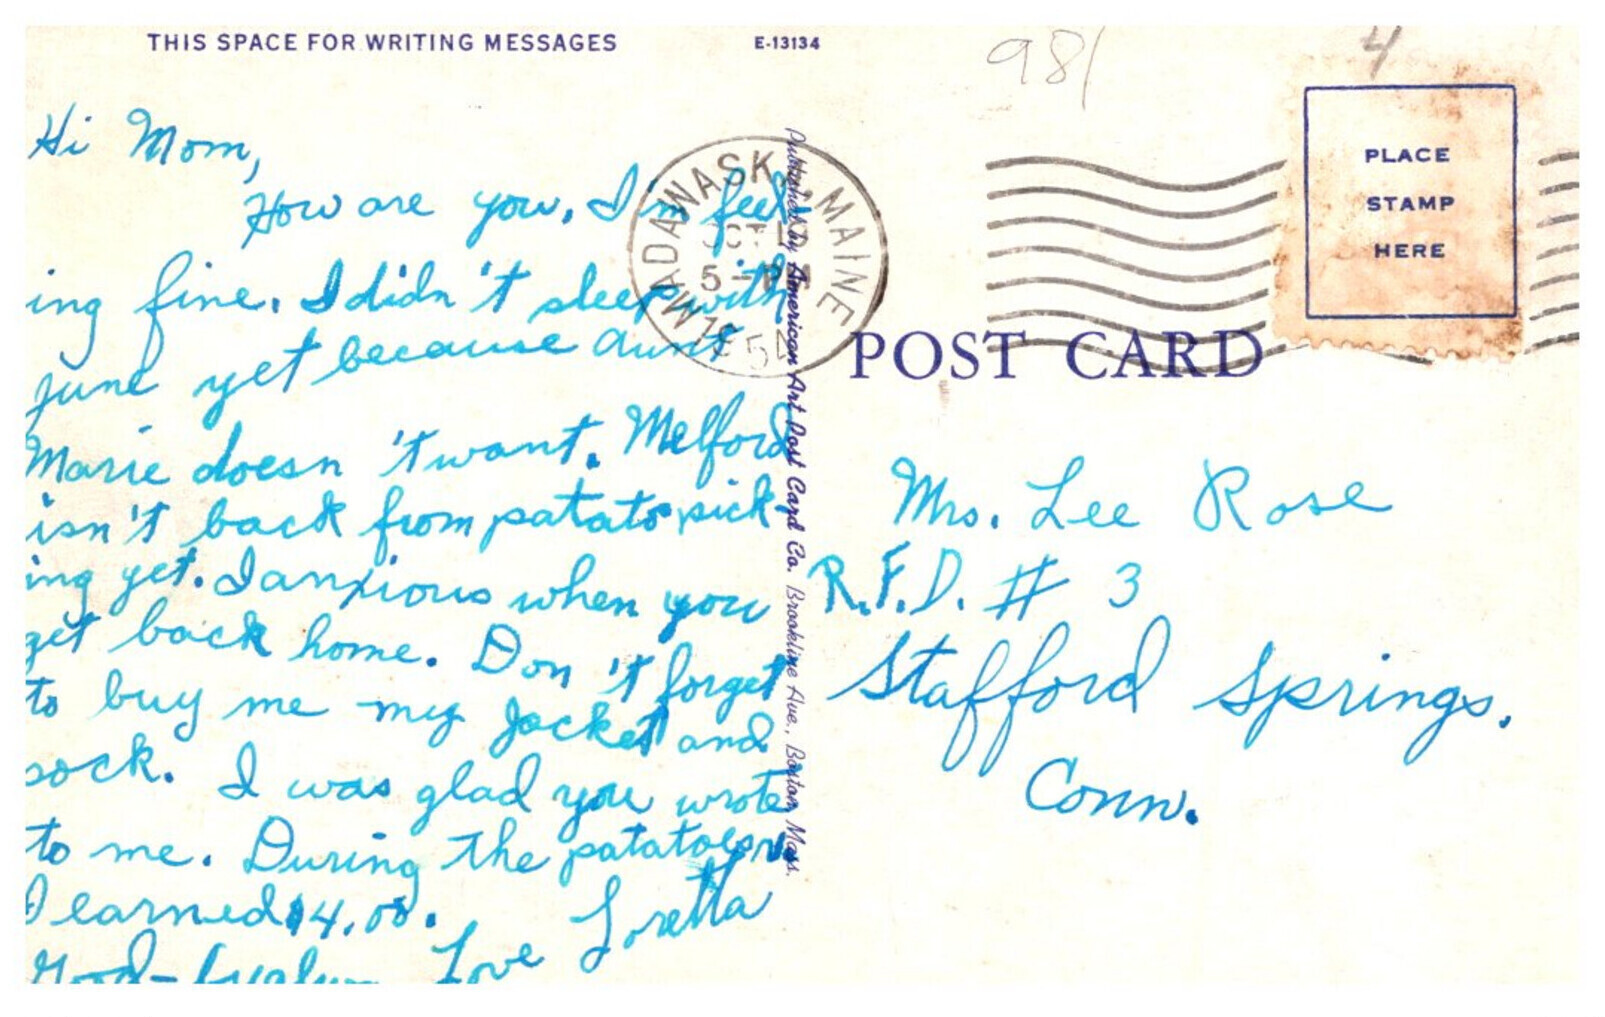 THIS SPACE FOR WRITING MESSAGES
E-13134
981
4
Hi Mom,
How are you. I'm feel-
ing fine. I didn't sleep with
june yet because aunt
Marie doesn't want. Melford
isn't back from patato pick-
ing yet. I anxious when you
get back home. Don't forget
to buy me my jacket and
sock. I was glad you wrote
to me. During the patatoes
I earned $4.00.
Good-
Love Loretta
MADAWASKA, MAINE
OCT
5-PM
1954
Published by American Art Post Card Co. Brookline Ave., Boston, Mass.
PLACE
STAMP
HERE
POST CARD
Mrs. Lee Rose
R.F.D. # 3
Stafford Springs.
Conn.